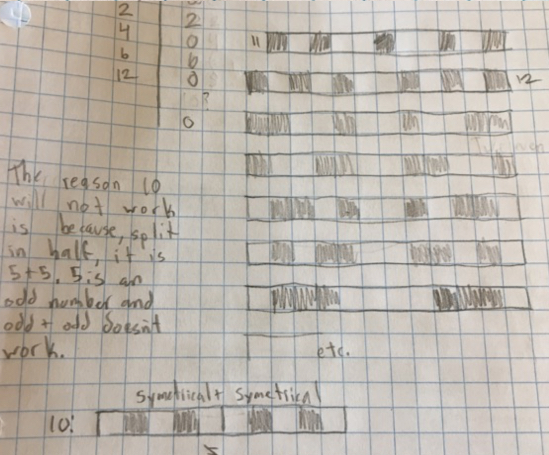 2
4
6
12
2
0
6
0
?
0
11
12
The reason 10
will not work
is because, split
in half, it is
5+5. 5 is an
odd number and
odd + odd doesn't
work.
etc.
Symetrical + Symetrical
10: